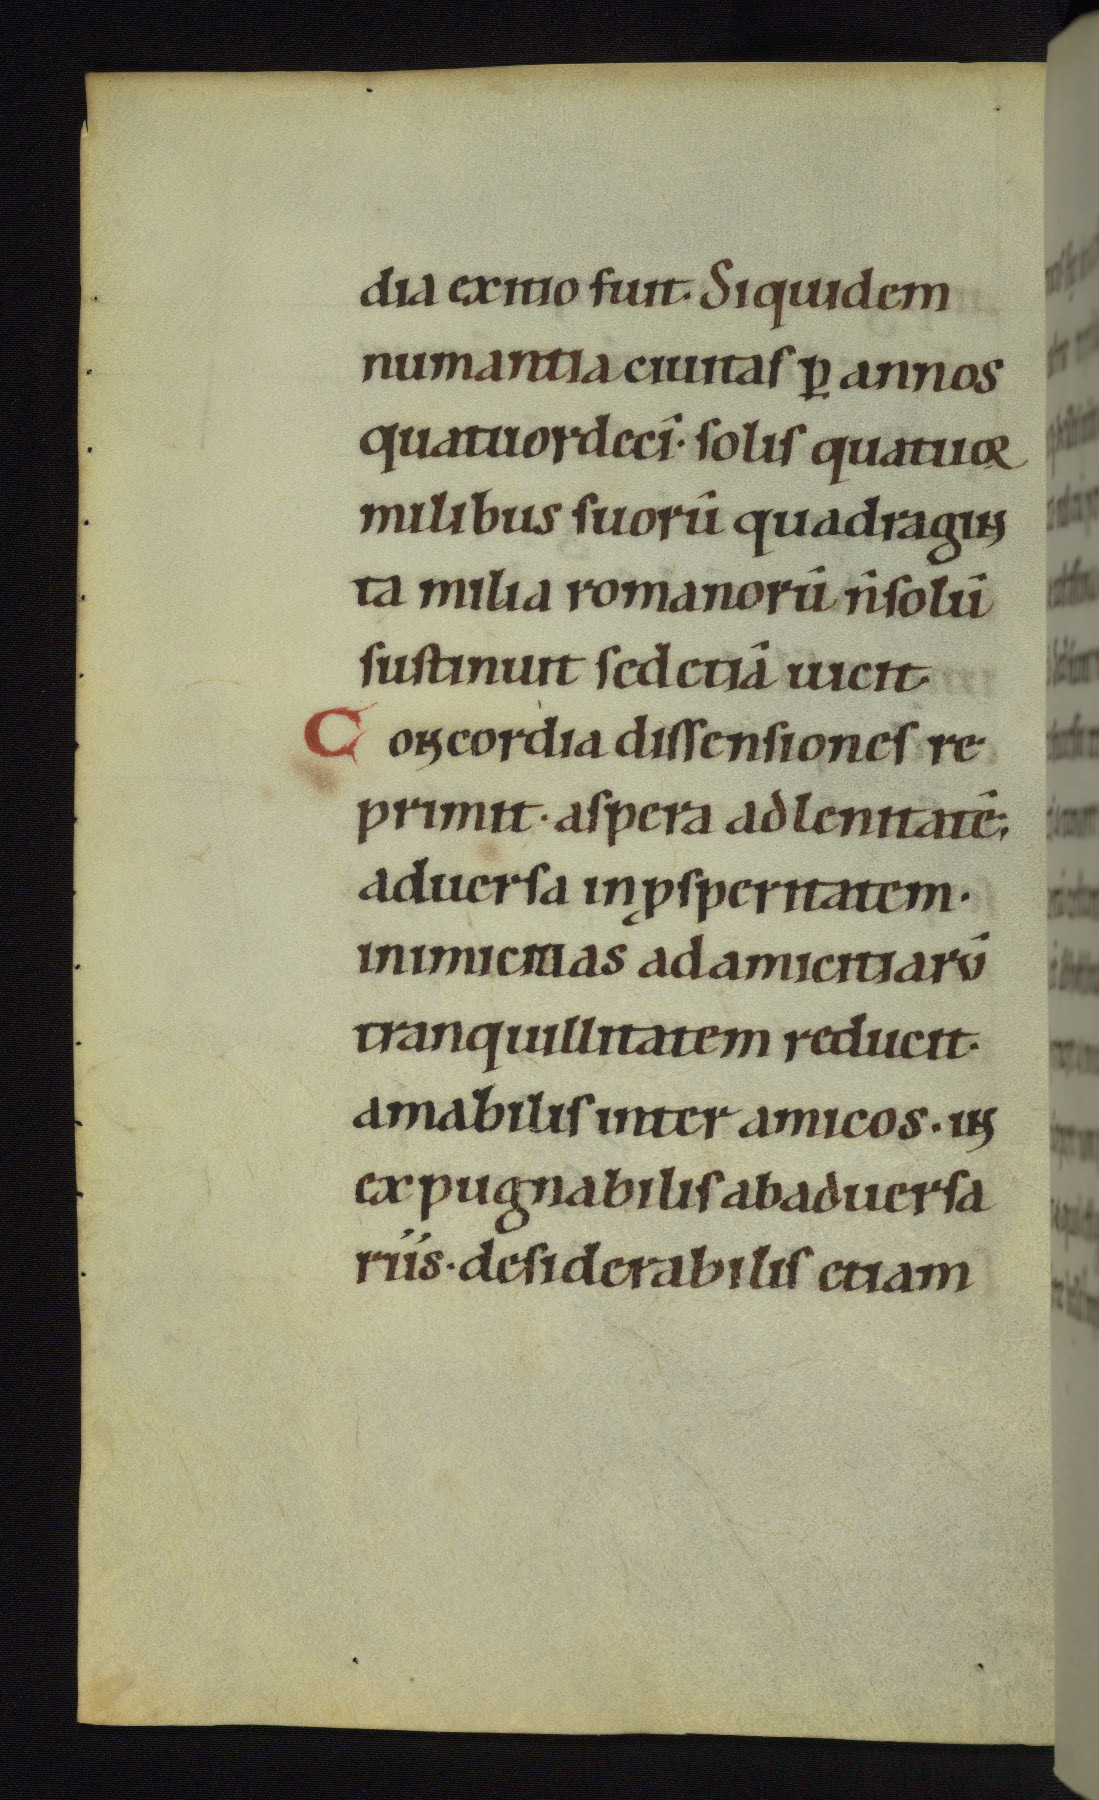 dia exitio fuit. Siquidem
numantia ciuitas ꝑ annos
quatuordecī· solis quatuor
milibus suorū quadragin
ta milia romanorū n̄ solū
sustinuit sed etiā uicit·
Concordia dissensiones re
primit· aspera ad lenitatē;
aduersa in ꝓsperitatem·
inimicitias ad amicitiarū
tranquillitatem reducit·
amabilis inter amicos· in
expugnabilis ab aduersa
riis· desiderabilis etiam